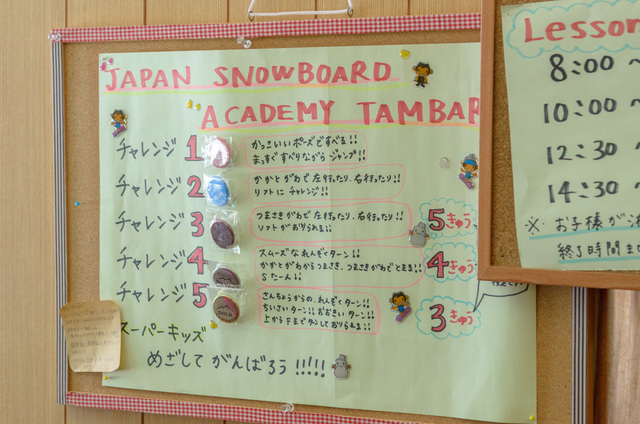 JAPAN SNOWBOARD
ACADEMY TAMBAR
チャレンジ 1
かっこいいポーズですべる!!
まっすぐすべりながら ジャンプ!!
チャレンジ 2
かかとがわで 左行ったり、右行ったり!!
リフトに チャレンジ!!
チャレンジ 3
つまさきがわで 左行ったり、右行ったり!!
リフトがおりられる!!
5きゅう
チャレンジ 4
スムーズな れんぞくターン!!
かかとがわからつまさき、つまさきがわでとまる!!
Sたーん!!
4きゅう
チャレンジ 5
さんちょうからの、れんぞくターン!!
ちいさいターン!! おおきいターン!!
上から下までターンしておりられる!!
3きゅう
スーパーキッズ
めざして がんばろう !!!!!
Lesson
8:00 〜
10:00 〜
12:30 〜
14:30 〜
※ お子様が
終了時間ま